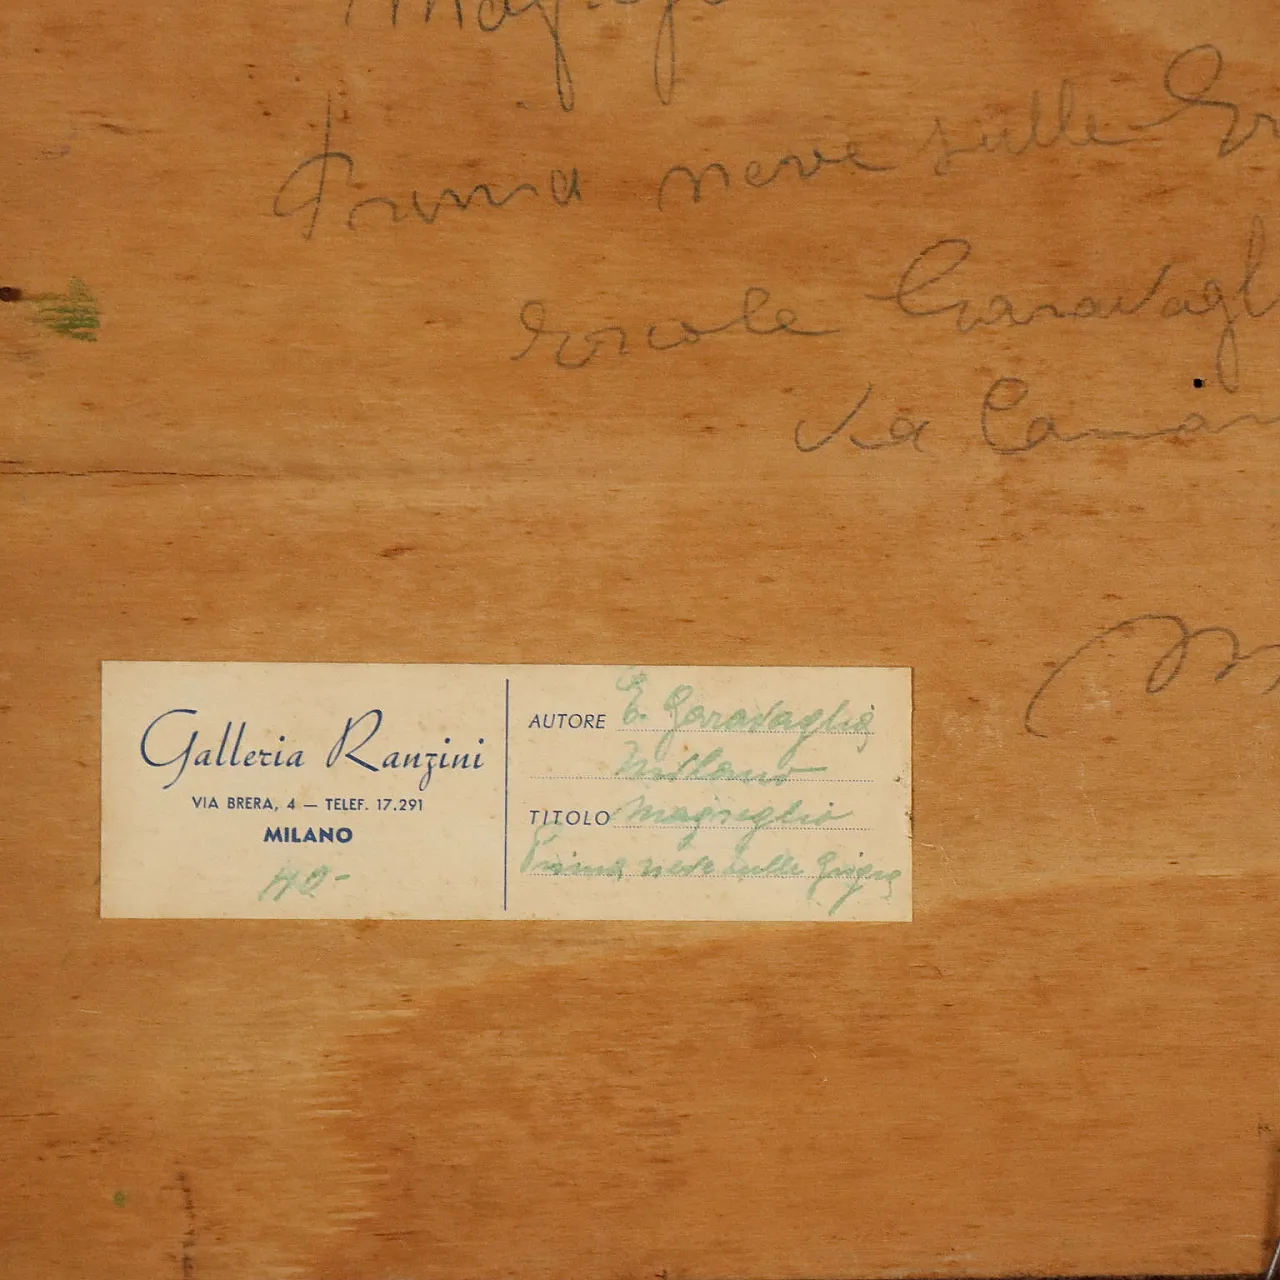 Prima neve sulle
Ercole Garavagl
Via
Galleria Ranzini
VIA BRERA, 4 — TELEF. 17.291
MILANO
AUTORE E. Garavaglia
Milano
TITOLO Magreglio
Prima neve sulle Grigne